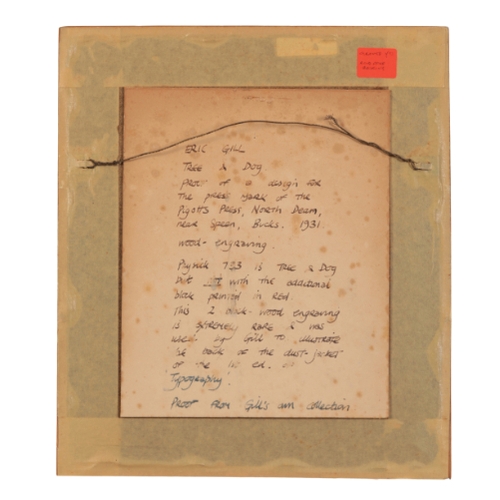 ERIC GILL
Tree & Dog
proof of a design for
the press mark of the
Pigotts Press, North Deam,
near Speen, Bucks. 1931
wood-engraving.
Physick 723 is Tree & Dog
but not with the additional
block printed in red.
This 2 block wood engraving
is extremely rare & was
used by Gill to illustrate
the back of the dust-jacket
of the 1st ed.
'Typography'.
Proof from Gill's own collection